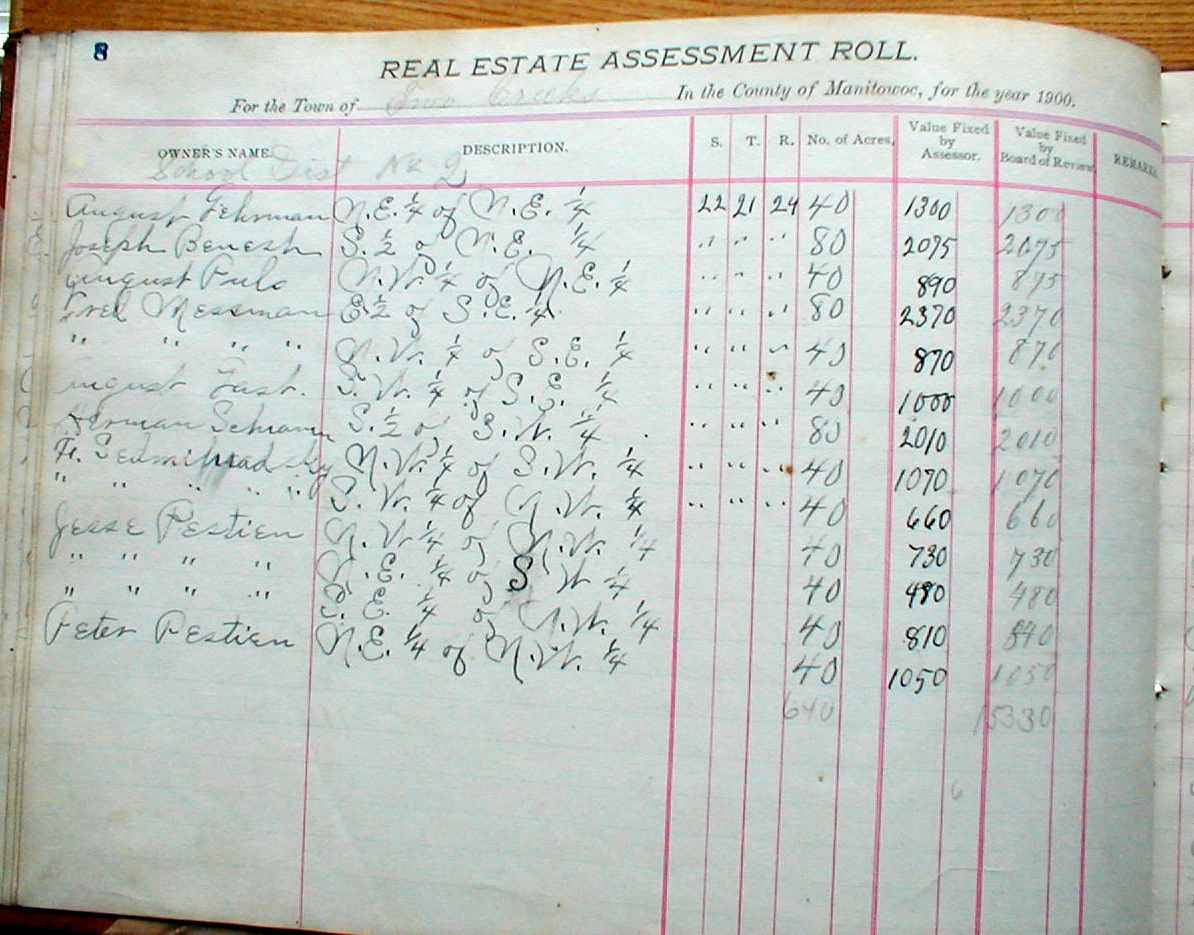 8
REAL ESTATE ASSESSMENT ROLL.
For the Town of Two Creeks In the County of Manitowoc, for the year 1900.
OWNER'S NAME. DESCRIPTION. S. T. R. No. of Acres. Value Fixed by Assessor. Value Fixed by Board of Review. REMARKS.
School Dist No 2
August Gehrman N.E. ¼ of N.E. ¼ 22 21 24 40 1300 1300
Joseph Benesh S. ½ of N.E. ¼ " " " 80 2075 2075
August N.W. ¼ of N.E. ¼ " " " 40 890 895
Fred Messman E ½ of S.E. ¼ " " " 80 2370 2370
" " " " N.W. ¼ of S.E. ¼ " " " 40 870 870
August Fast. S.W. ¼ of S.E. ¼ " " " 40 1000 1000
Herman S. ½ of S.W. ¼ " " " 80 2010 2010
N.W. ¼ of S.W. ¼ " " " 40 1070 1070
" " " " " S.W. ¼ of N.W. ¼ " " " 40 660 660
Jesse Pestien N.W. ¼ of N.W. ¼ 40 730 730
" " " " N.E. ¼ of S W ¼ 40 480 480
" " " " S.E. ¼ of N.W. ¼ 40 810 840
Peter Pestien N.E. ¼ of N.W. ¼ 40 1050 1050
640 15330
6